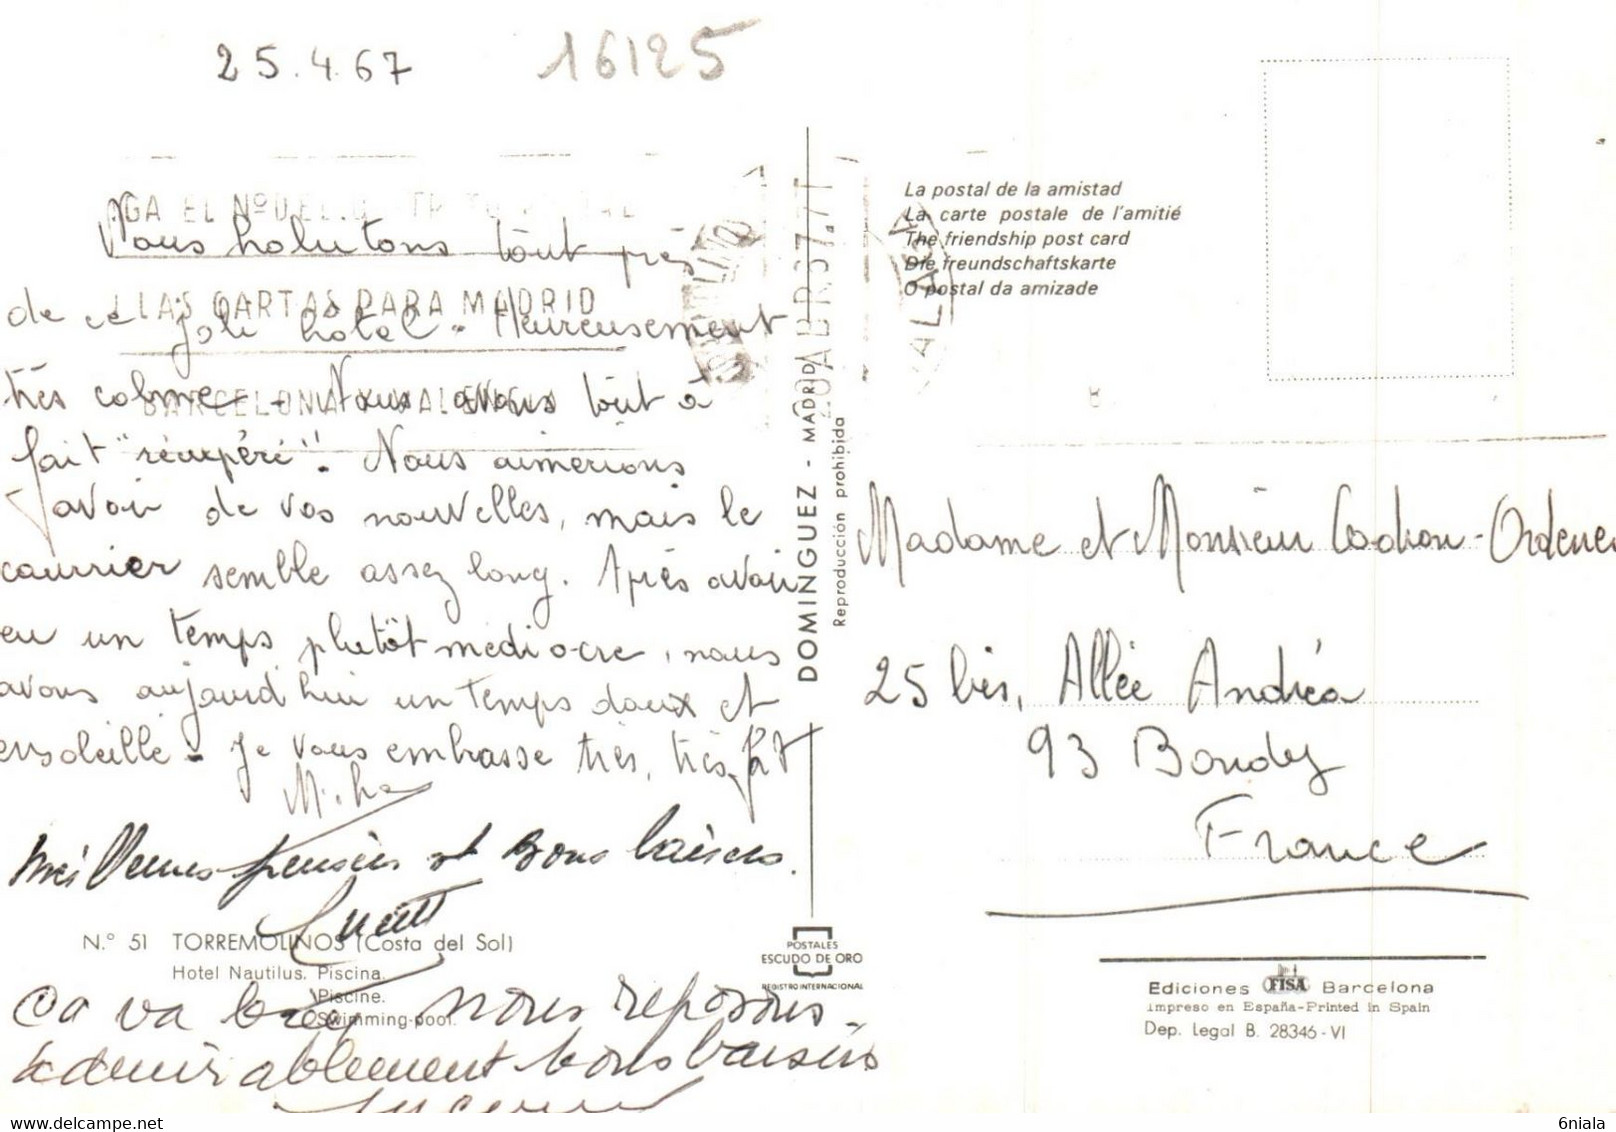 25.4.67
16125
Nous habitons tout près
de ce joli hôtel. Heureusement
très calme - Nous avons tout à
fait "récupéré". Nous aimerions
avoir de vos nouvelles, mais le
courrier semble assez long. Après avoir
eu un temps plutôt médiocre, nous
avons aujourd'hui un temps doux et
ensoleillé - Je vous embrasse très, très fort
Micha
Meilleures pensées et Bons baisers.
N.° 51 TORREMOLINOS (Costa del Sol)
Hotel Nautilus. Piscina.
Piscine.
Swimming-pool.
Ca va nous reposons -
admirablement bons baisers
LAS CARTAS PARA MADRID
BARCELONA VALENCIA
DOMINGUEZ - MADRID
Reproducción prohibida
POSTALES
ESCUDO DE ORO
REGISTRO INTERNACIONAL
La postal de la amistad
La carte postale de l'amitié
The friendship post card
Die freundschaftskarte
O postal da amizade
Madame et Monsieur Cochon-Ordener
25 bis, Allée Andréa
93 Bondy
France
Ediciones FISA Barcelona
Impreso en España-Printed in Spain
Dep. Legal B. 28346-VI
delcampe.net
6niala